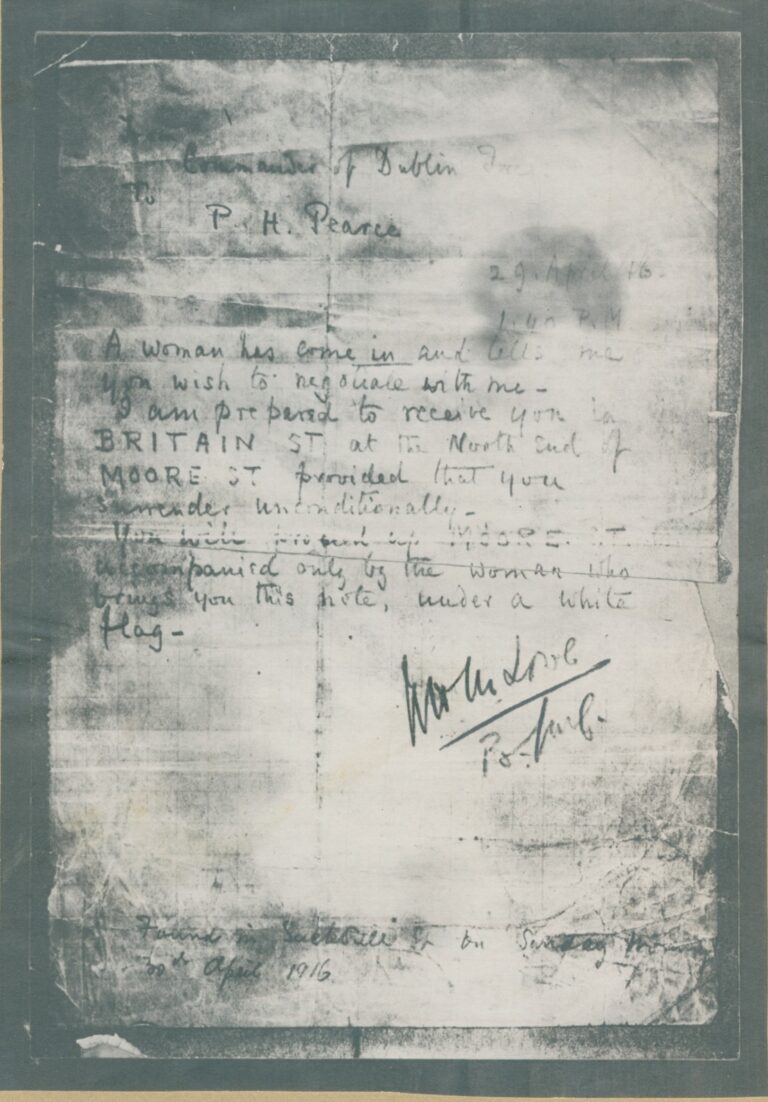 Commander of Dublin
To
P. H. Pearce
29. April 16.
1.40 P.M
A woman has come in and tells me
you wish to negotiate with me -
I am prepared to receive you in
BRITAIN ST at the North End of
MOORE ST provided that you
surrender unconditionally -
You will proceed up MOORE ST
accompanied only by the woman who
brings you this note, under a white
flag -
Lowe
Found in Sackville St on Sunday Morning
30th April 1916